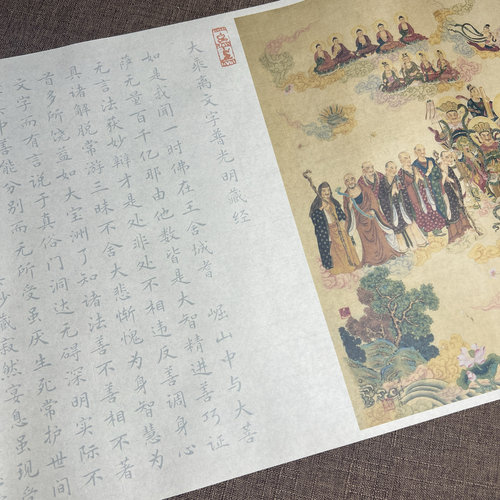 大乘离文字普光明藏经
如是我闻一时佛在王舍城耆 崛山中与大菩
萨无量百千亿那由他数皆是大智精进善巧证
无言法获妙辩才是处非处不相违反善调身心
具诸解脱常游三昧不舍大悲惭愧为身智慧为
首多所饶益如大宝洲了知诸法善不善相不著
文字而有言说于真俗门洞达无碍深明实际不
其中善能分别而无所受虽厌生死常护世间
妙藏寂然宴息虽现受